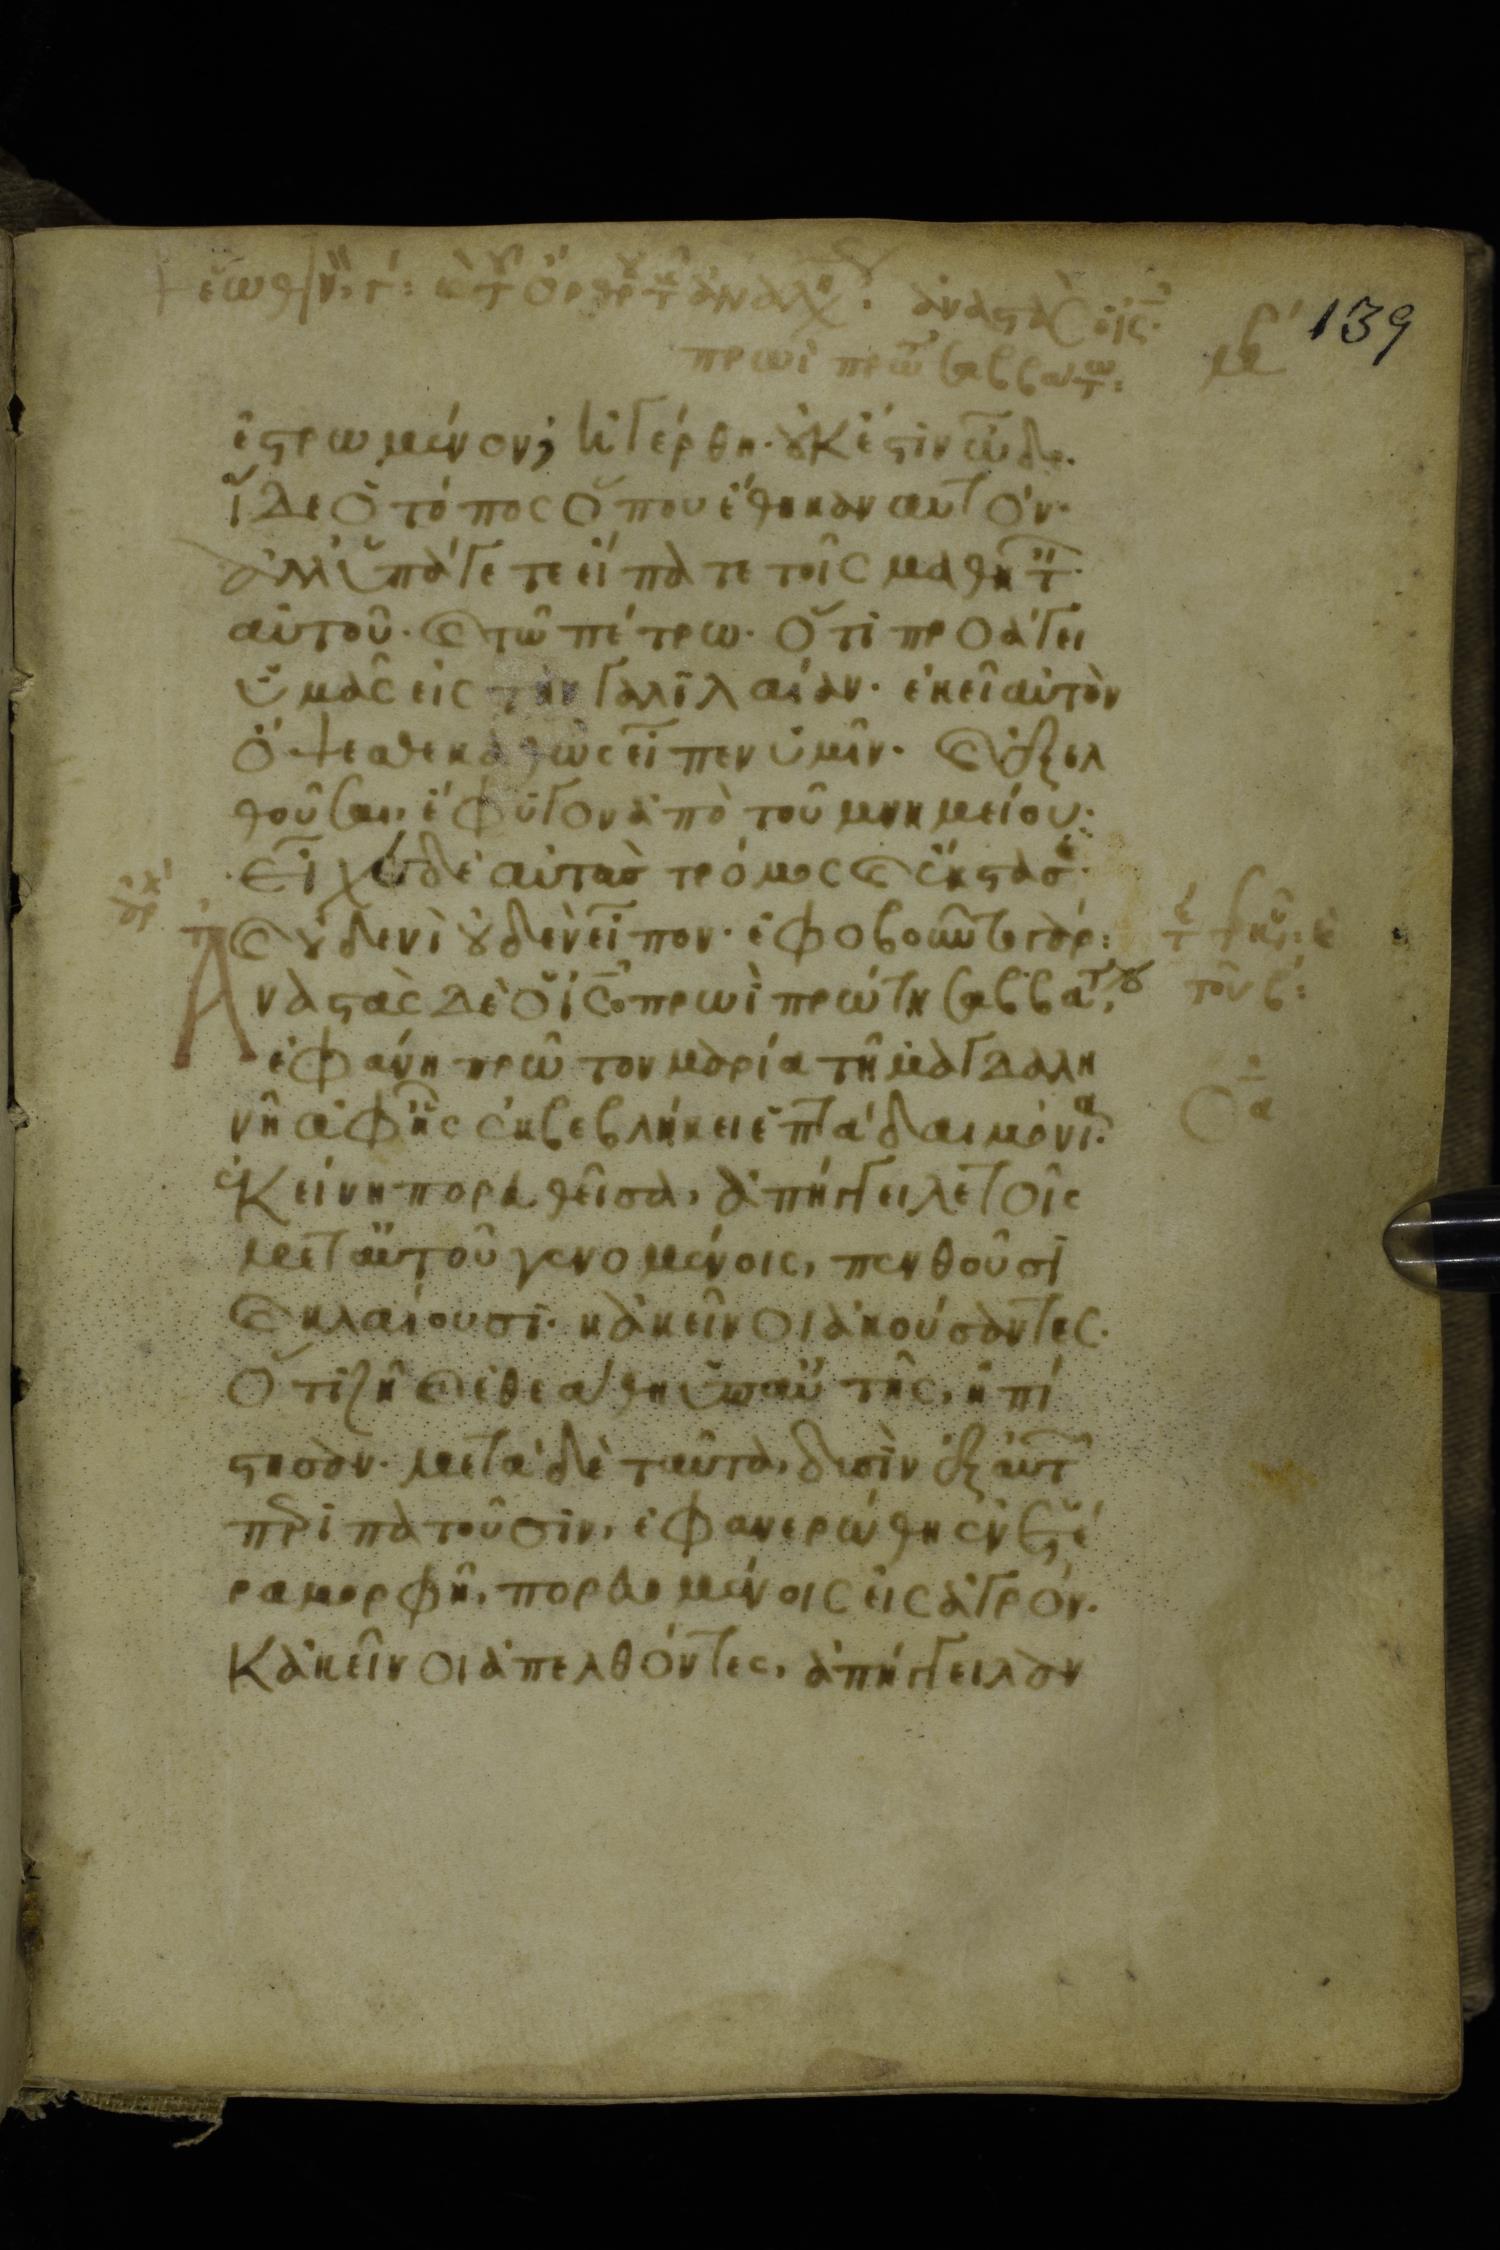 139
ἐστρωμένον; ἠγέρθη· οὐκ ἔστιν ὧδε·
ἴδε ὁ τόπος ὅπου ἔθηκαν αὐτόν·
ἀλλ' ὑπάγετε εἴπατε τοῖς μαθητ
αὐτοῦ· καὶ τῶ πέτρω· ὅτι προάγει
ὑμᾶς εἰς τὴν γαλιλαίαν· ἐκεῖ αὐτὸν
ὄψεσθε καθὼς εἶπεν ὑμῖν· καὶ ἐξελ
θοῦσαι, ἔφυγον ἀπὸ τοῦ μνημείου·
εἶχε δὲ αὐτὰς τρόμος καὶ ἔκστασ
καὶ οὐδενὶ οὐδὲν εἶπον· ἐφοβοῦντο γάρ:
Ἀναστὰς δὲ ὁ ις πρωὶ πρώτη σαββάτου,
ἐφάνη πρῶτον μαρία τῆ μαγδαλη
νῆ ἀφ' ἧς ἐκβεβλήκει ἑπτὰ δαιμόνια·
ἐκείνη πορευθεῖσα, ἀπήγγειλε τοῖς
μετ' αὐτοῦ γενομένοις, πενθοῦσι
καὶ κλαίουσι· κἀκεῖνοι ἀκούσαντες·
ὅτι ζῆ καὶ ἐθεάθη ὑπ' αὐτῆς, ἠπί
στησαν· μετὰ δὲ ταῦτα, δυσὶν ἐξ αὐτ
περιπατοῦσιν, ἐφανερώθη ἐν ἑτέ
ρα μορφῆ, πορευομένοις εἰς ἀγρόν·
κἀκεῖνοι ἀπελθόντες, ἀπήγγειλαν